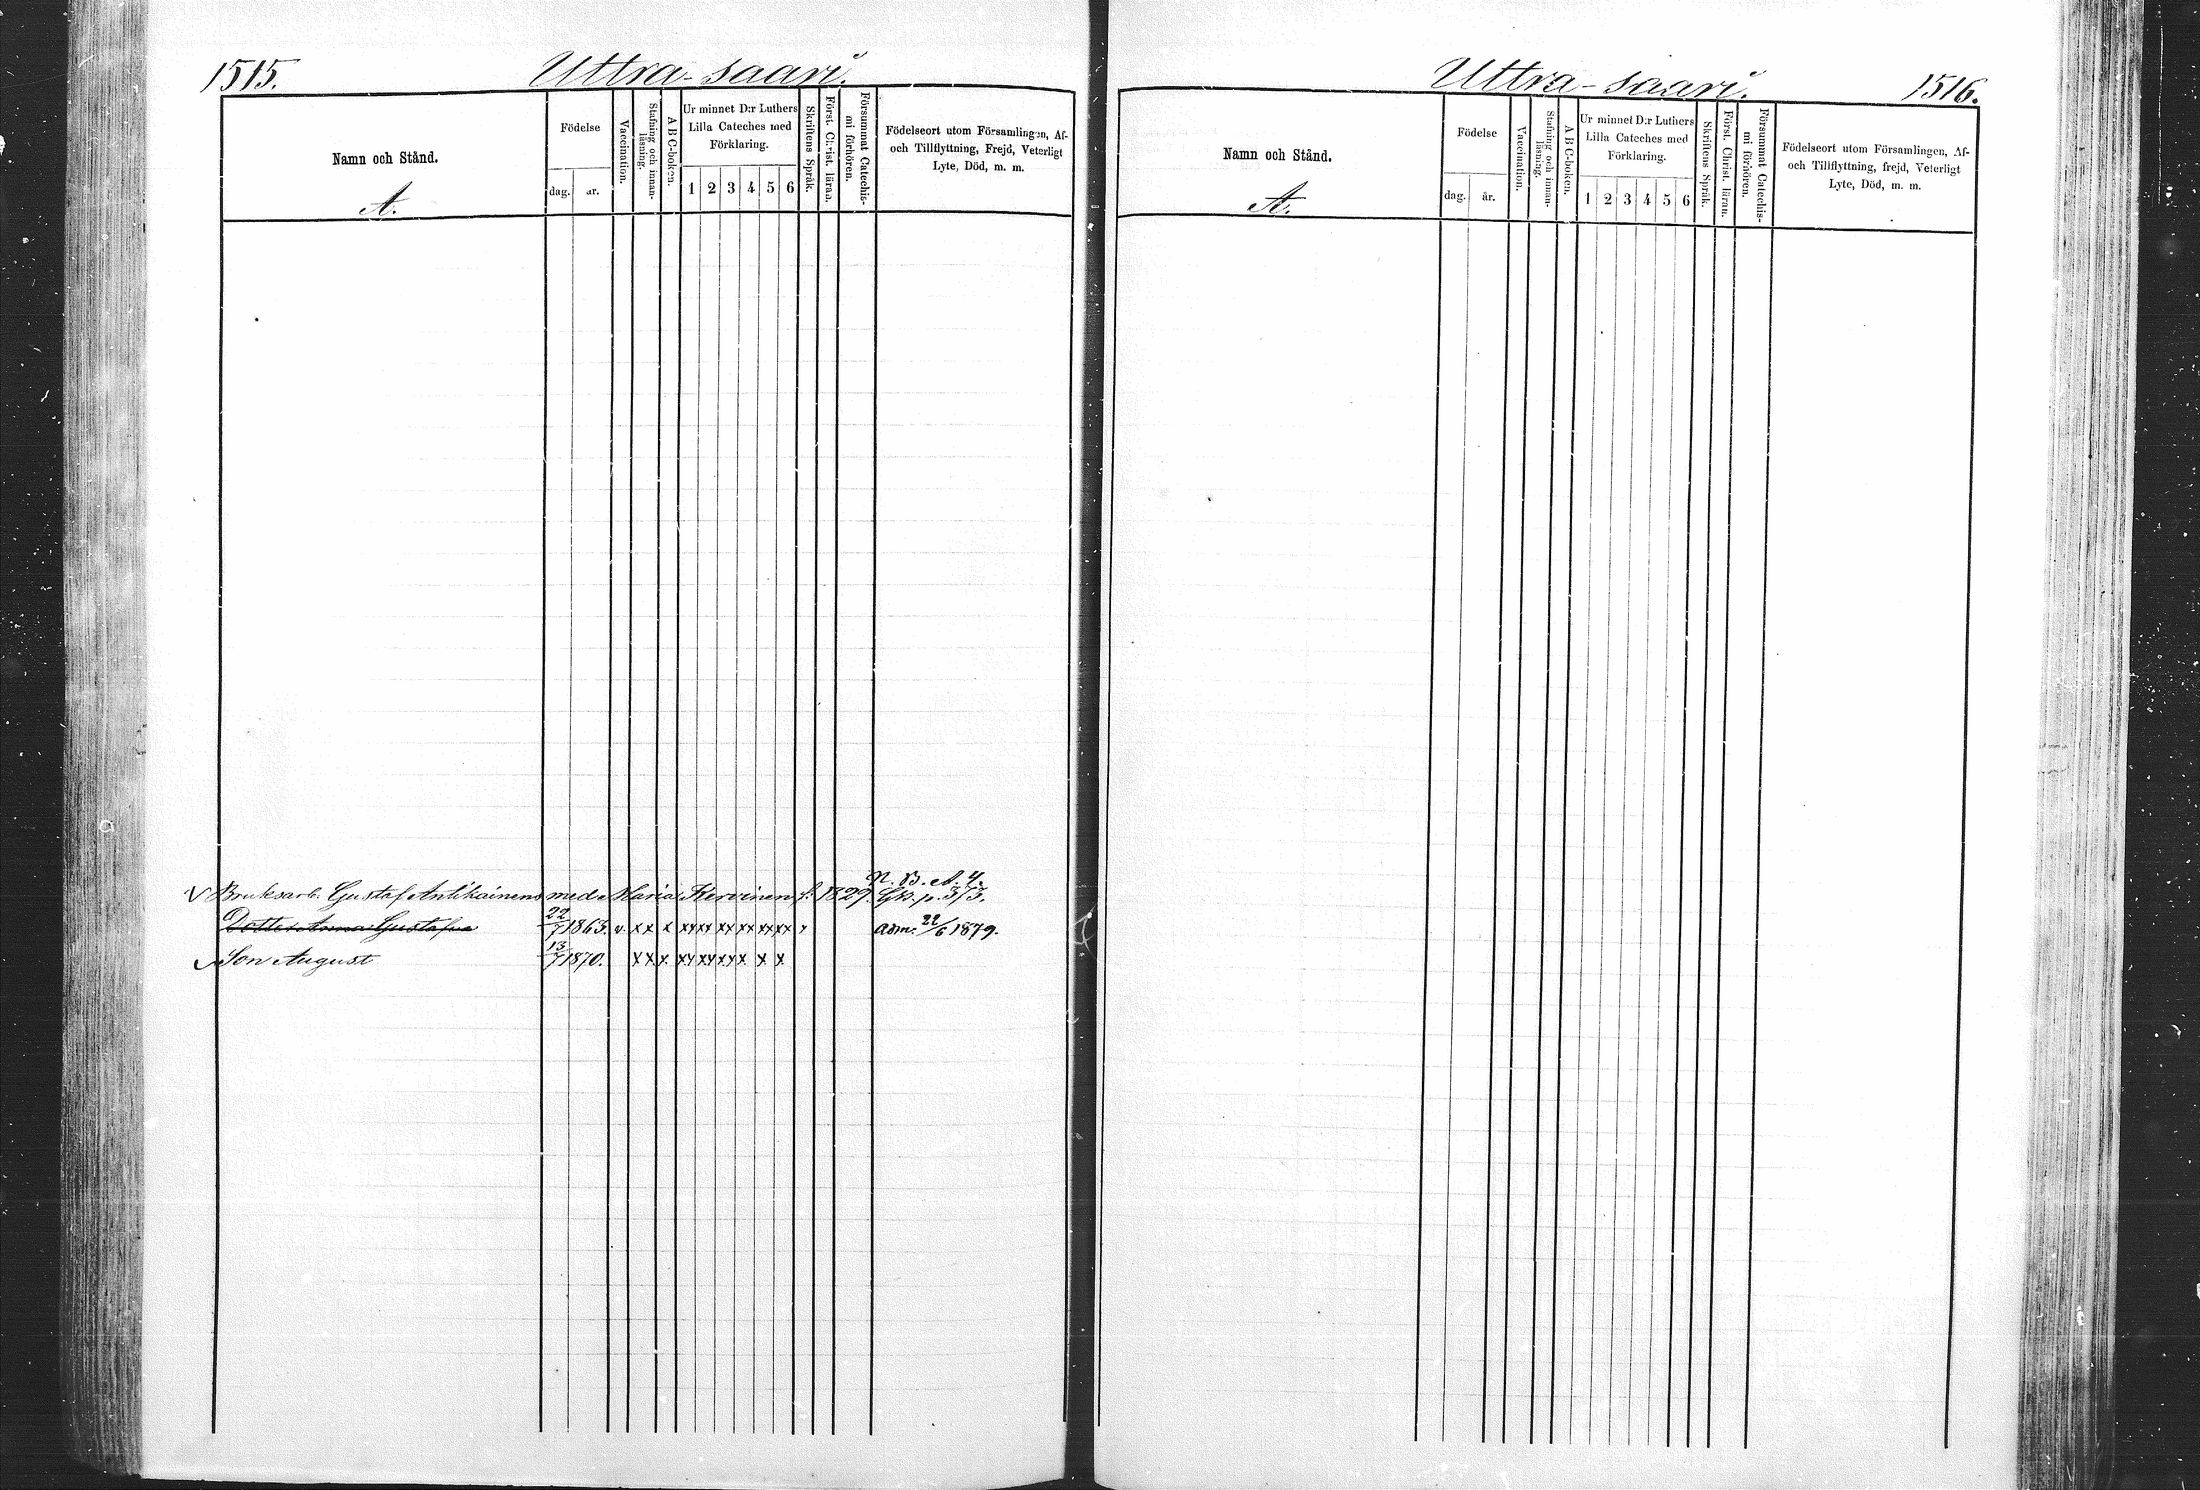 1515.
Uttra-saari.
Namn och Stånd.
A.
Födelse
dag. år.
Vaccination.
Stafning och innan-
läsning.
A B C-boken.
Ur minnet D:r Luthers
Lilla Cateches med
Förklaring.
1 2 3 4 5 6
Skriftens Språk.
Först. Christ. läran.
Försummat Catechis-
mi förhören.
Födelseort utom Församlingen, Af-
och Tillflyttning, Frejd, Veterligt
Lyte, Död, m. m.
N. B. A. 4.
V Bruksarb. Gustaf Antikainens med Maria Kervinen f. 1829. Gk. p. 373.
Dotter Anna Gustafva 22/7 1863. v. x x x xx xx xx xx xx xx v adm. 22/6 1879.
Son August 13/7 1870. x x x. xx xx xx x x x
Uttra-saari.
1516.
Namn och Stånd.
A.
Födelse
dag. år.
Vaccination.
Stafning och innan-
läsning.
A B C-boken.
Ur minnet D:r Luthers
Lilla Cateches med
Förklaring.
1 2 3 4 5 6
Skriftens Språk.
Först. Christ. läran.
Försummat Catechis-
mi förhören.
Födelseort utom Församlingen, Af-
och Tillflyttning, frejd, Veterligt
Lyte, Död, m. m.